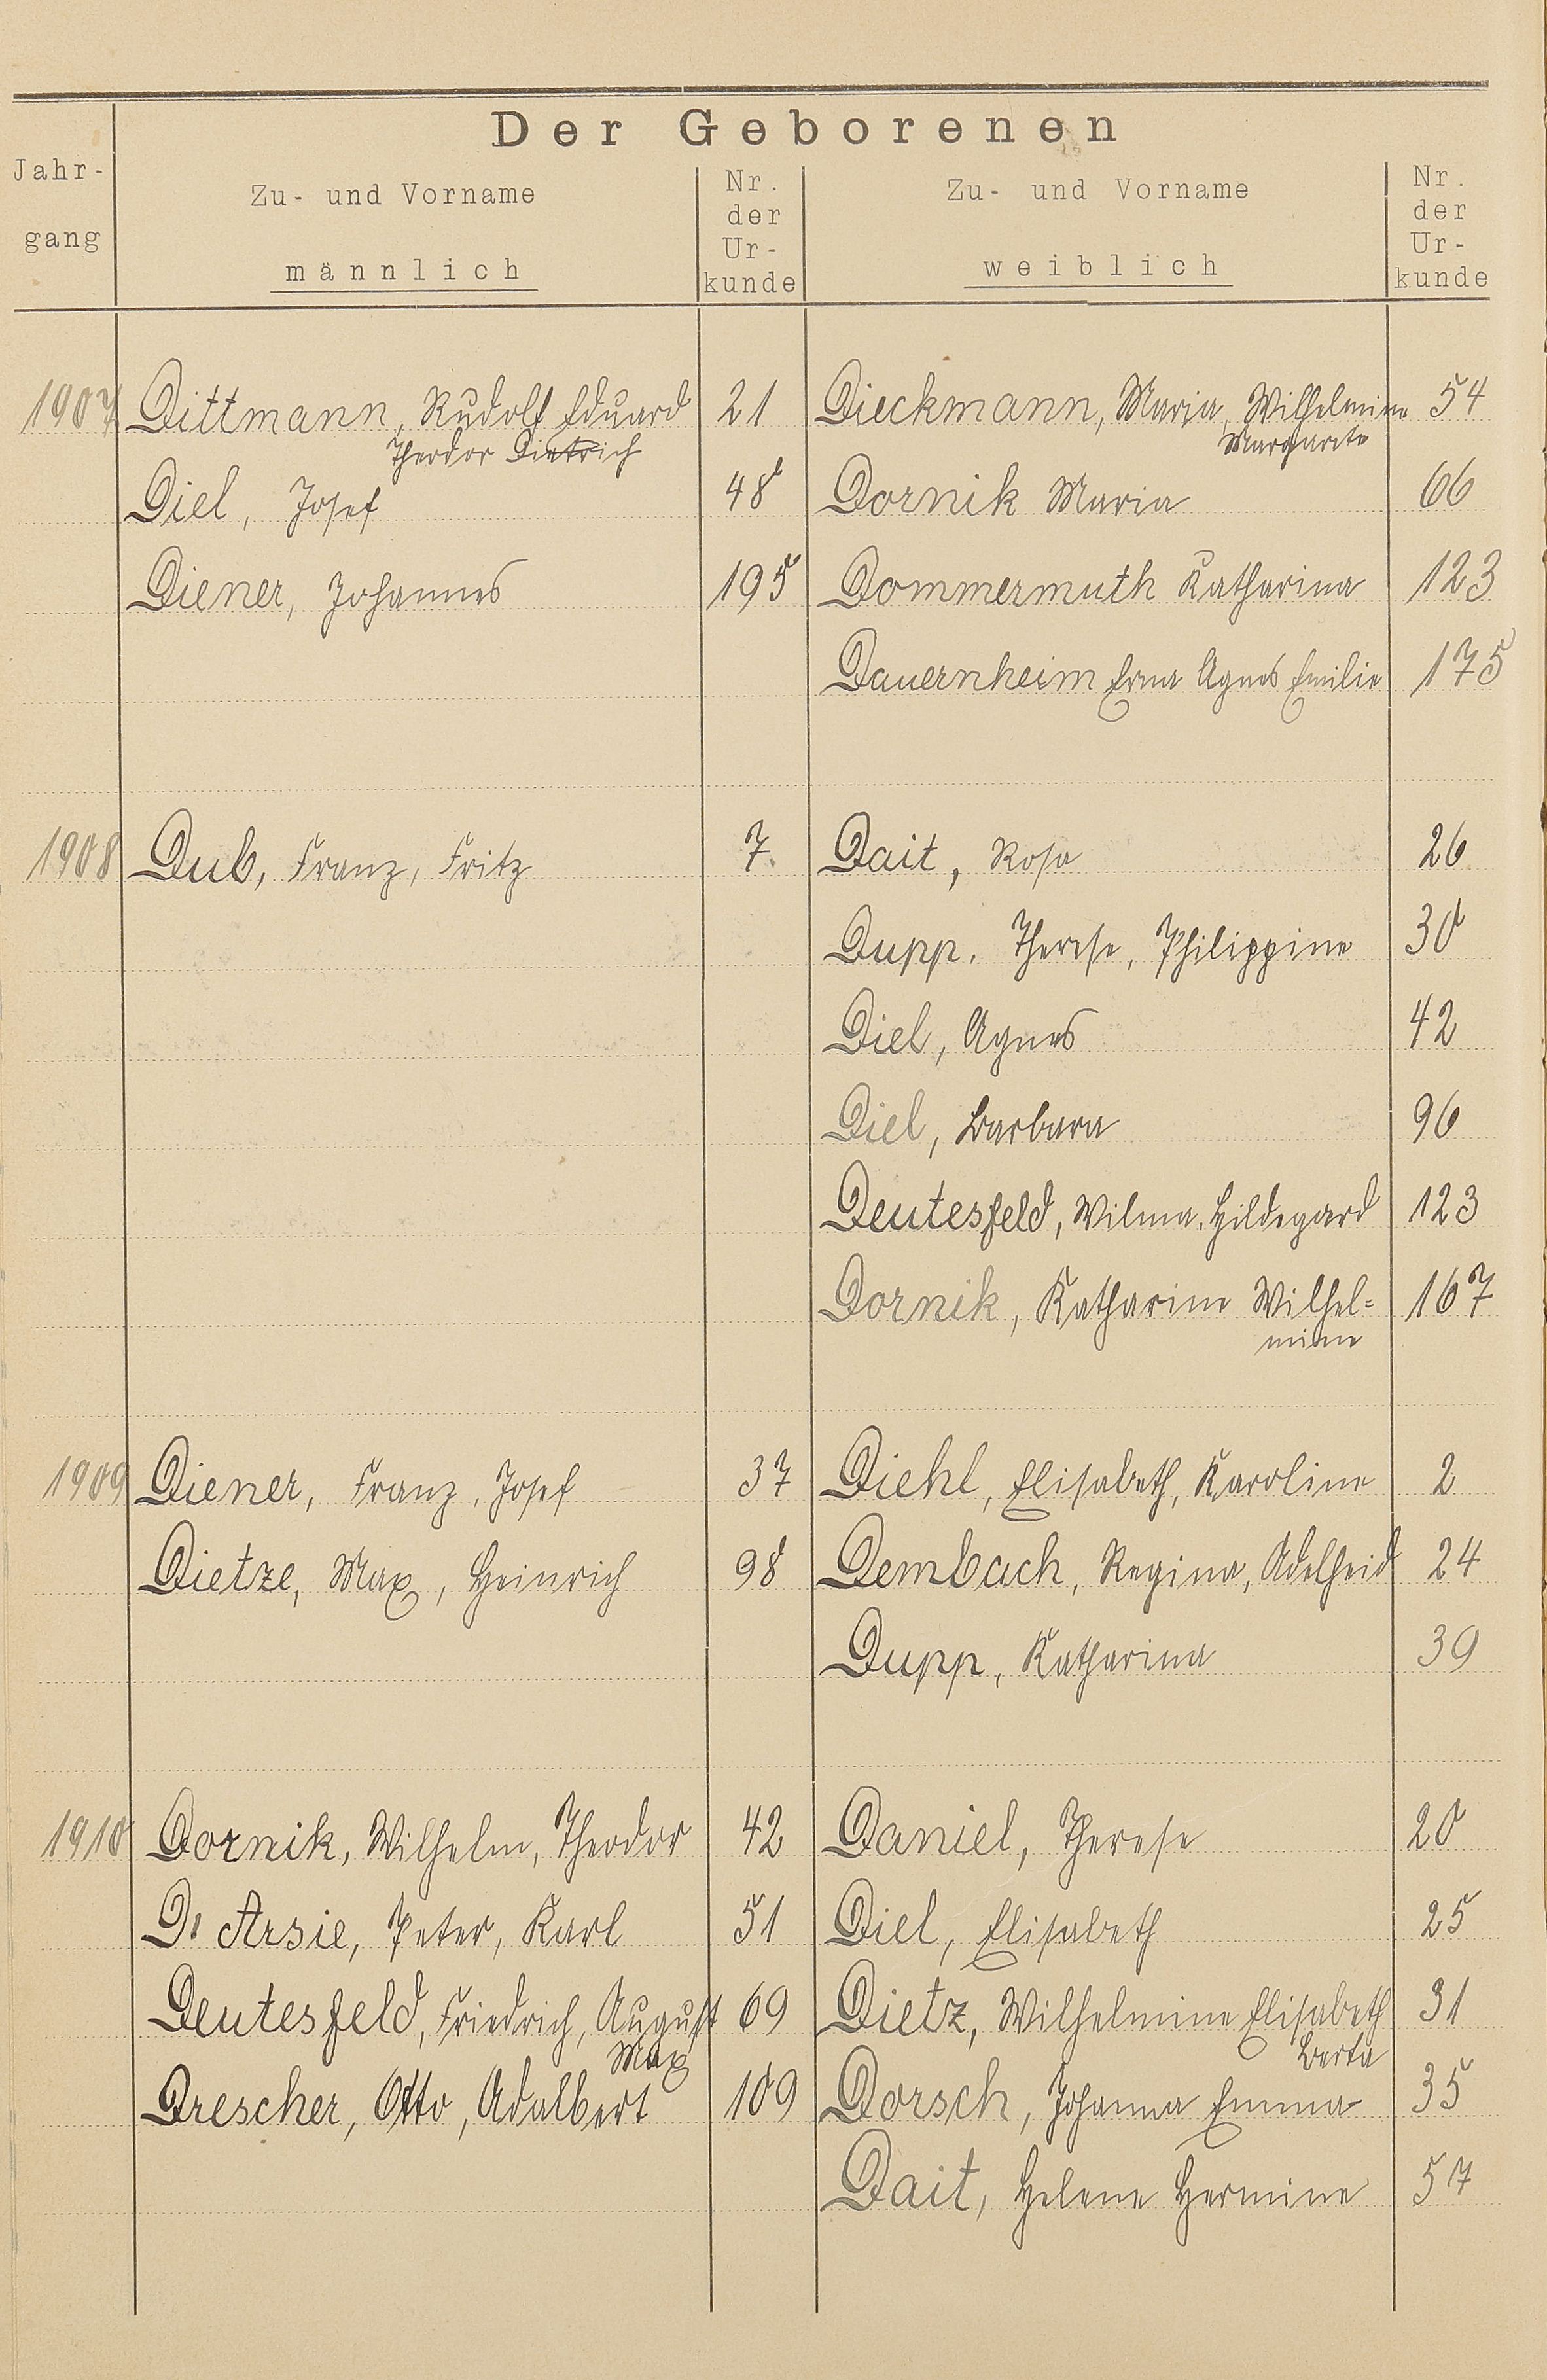 Der Geborenen
Jahr-
gang
Zu- und Vorname
männlich
Nr.
der
Ur-
kunde
Zu- und Vorname
weiblich
Nr.
der
Ur-
kunde
1907 Dittmann, Rudolf Eduard 21 Dieckmann, Maria, Wilhelmine 54
Theodor Dietrich Margarete
Diel, Josef 48 Dornik Maria 66
Diener, Johannes 195 Dommermuth Katharina 123
Dauernheim Erna Agnes Emilie 175
1908 Dub, Franz, Fritz 7. Dait, Rosa 26
Dupp, Therese, Philippine 30
Diel, Agnes 42
Diel, Barbara 96
Deutesfeld, Wilma, Hildegard 123
Dornik, Katharine Wilhel=
mine 167
1909 Diener, Franz, Josef 37 Diehl, Elisabeth, Karoline 2
Dietze, Max, Heinrich 98 Dembach, Regina, Adelheid 24
Dupp, Katharina 39
1910 Dornik, Wilhelm, Theodor 42 Daniel, Therese 20
D' Arsie, Peter, Karl 51 Diel, Elisabeth 25
Deutesfeld, Friedrich, August 69 Dietz, Wilhelmine Elisabeth 31
Max Berta
Drescher, Otto, Adalbert 109 Dorsch, Johanna Emma 35
Dait, Helene Hermine 57